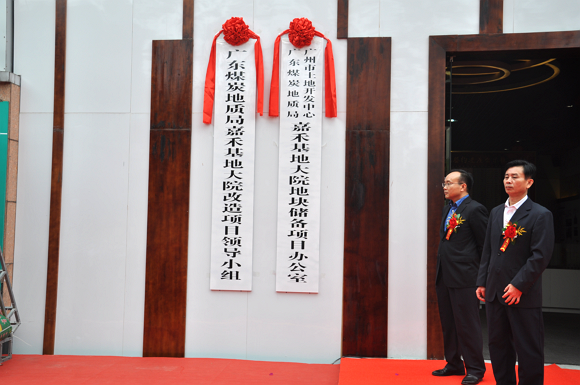 广东煤炭地质局嘉禾基地大院改造项目领导小组
广州市土地开发中心
广东煤炭地质局
嘉禾基地大院地块储备项目办公室